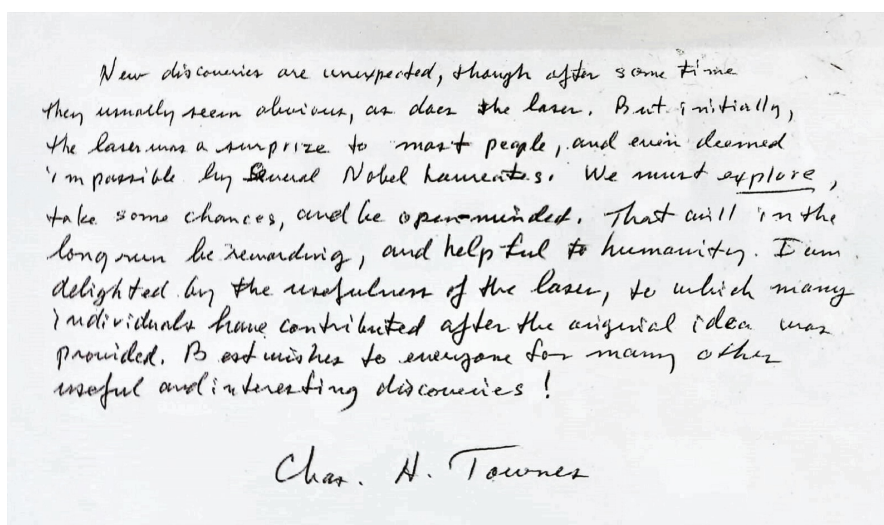 New discoveries are unexpected, though after some time
they usually seem obvious, as does the laser. But initially,
the laser was a surprize to most people, and even deemed
impossible by several Nobel Laureates. We must explore,
take some chances, and be open-minded. That will in the
long run be rewarding, and helpful to humanity. I am
delighted by the usefulness of the laser, to which many
individuals have contributed after the original idea was
provided. Best wishes to everyone for many other
useful and interesting discoveries!
Chas. H. Townes